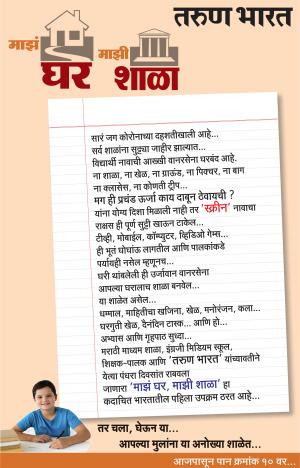 तरुण भारत
माझं घर माझी शाळा
सारं जग कोरोनाच्या दहशतीखाली आहे...
सर्व शाळांना सुट्ट्या जाहीर झाल्यात...
विद्यार्थी नावाची आख्खी वानरसेना घरबंद आहे.
ना शाळा, ना खेळ, ना ग्राऊंड, ना पिक्चर, ना बाग
ना क्लासेस, ना कोणती ट्रीप...
मग ही प्रचंड ऊर्जा काय दाबून ठेवायची ?
यांना योग्य दिशा मिळाली नाही तर 'स्क्रीन' नावाचा
राक्षस ही पूर्ण सुट्टी खाऊन टाकेल...
टीव्ही, मोबाईल, कॉम्प्युटर, व्हिडिओ गेम्स...
ही भूतं घोंघाऊ लागतील आणि पालकांकडे
पर्यायही नसेल म्हणूनच...
घरी थांबलेली ही उर्जावान वानरसेना
आपल्या घरालाच शाळा बनवेल...
या शाळेत असेल...
धम्माल, माहितीचा खजिना, खेळ, मनोरंजन, कला...
घरगुती खेळ, दैनंदिन टास्क... आणि हो...
अभ्यास आणि गृहपाठ सुध्दा...
मराठी माध्यम शाळा, इंग्रजी मिडियम स्कूल,
शिक्षक-पालक आणि 'तरुण भारत' यांच्यावतीने
येत्या पंधरा दिवसांत राबवला
जाणारा 'माझं घर, माझी शाळा' हा
कदाचित भारतातील पहिला उपक्रम ठरत आहे...
तर चला, घेऊन या...
आपल्या मुलांना या अनोख्या शाळेत...
आजपासून पान क्रमांक १० वर...